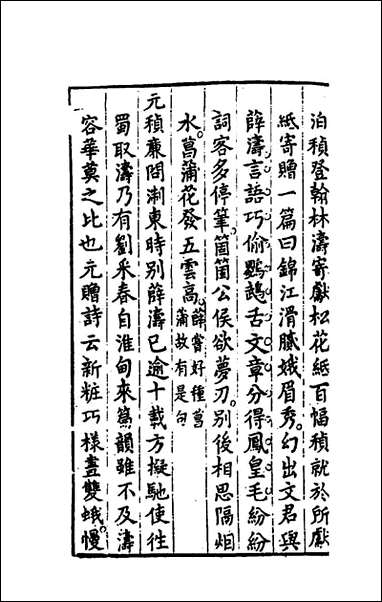 泊稹登翰林濤寄獻松花紙百幅稹就於所獻
紙寄贈一篇曰錦江滑膩娥眉秀幻出文君與
薛濤言語巧偷鸚鵡舌文章分得鳳皇毛紛紛
詞客多停筆箇箇公侯欲夢刀別後相思隔烟
水菖蒲花發五雲高薛嘗好種菖蒲故有是句
元稹廉問淛東時別薛濤已逾十載方擬馳使徃
蜀取濤乃有劉采春自淮甸來篇韻雖不及濤
容華莫之比也元贈詩云新粧巧樣畫雙蛾慢